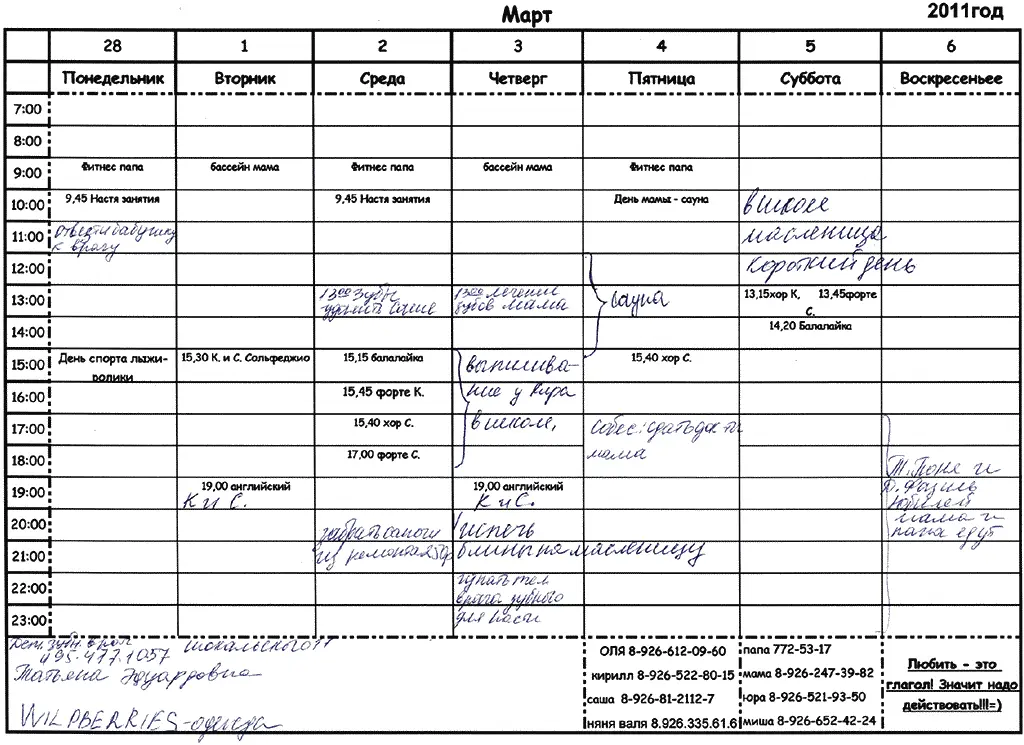 Март
2011год
28 1 2 3 4 5 6
Понедельник Вторник Среда Четверг Пятница Суббота Воскресеньее
7:00
8:00
9:00 Фитнес папа бассейн мама Фитнес папа бассейн мама Фитнес папа
10:00 9,45 Настя занятия 9,45 Настя занятия День мамы - сауна в школе
11:00 отвести бабушку масленица
к врачу
12:00 короткий день
13:00 13 00 зубы 13 00 лечение сауна 13,15хор К, 13,45форте
удалить Саше зубов мама С.
14:00 14,20 Балалайка
15:00 День спорта лыжи- 15,30 К. и С. Сольфеджио 15,15 балалайка выпилива- 15,40 хор С.
ролики
16:00 15,45 форте К. ние у
17:00 15,40 хор С. в школе, собес: сдать док-ты
18:00 17,00 форте С. мама
Т. Тоне и
19:00 19,00 английский 19,00 английский
К и С. К и С. Юбилей
20:00 забрать сапоги испечь мама и
папа едут
21:00 из ремонта блины на масленицу
22:00 узнать тел
врача зубного
23:00 для
Дет. зубн. врач
495-477-1057
Татьяна Эдуардовна
WILDBERRIES-одежда
ОЛЯ 8-926-612-09-60
кирилл 8-926-522-80-15
саша 8-926-81-2112-7
няня валя 8.926.335.61.6
папа 772-53-17
мама 8-926-247-39-82
юра 8-926-521-93-50
миша 8-926-652-42-24
Любить - это
глагол! Значит надо
действовать!!!=)